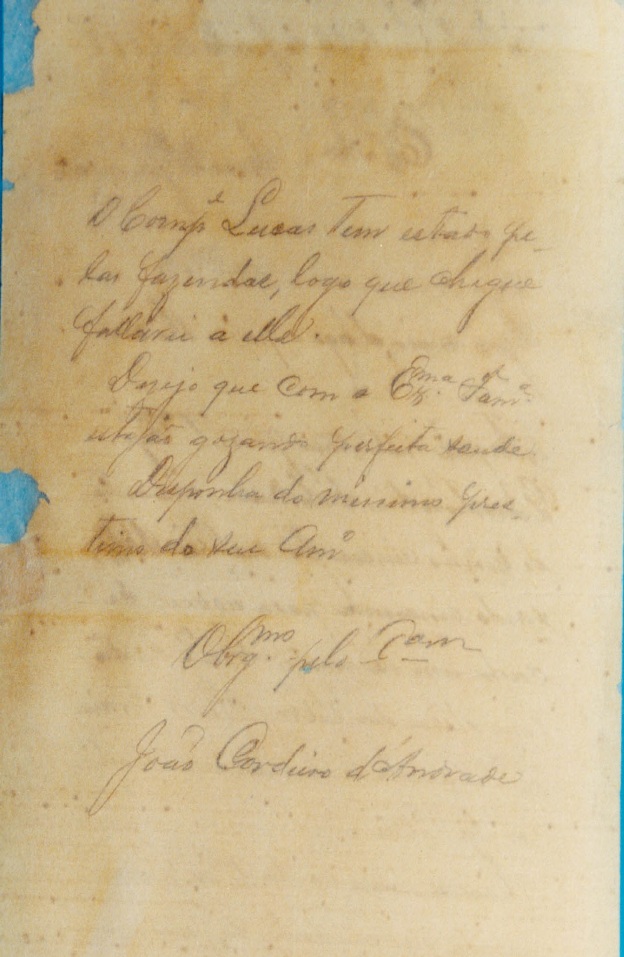 O Comp.e Lucas tem estado pe-
las fazendas, logo que chegue
fallarei á elle.
Dezejo que com a Ex.ma Fam.a
estejão gozando perfeita saude.
Disponha do missimo pres-
timo do seu Am.o
Obrg.mo pelo
João Cordeiro d'Andrade